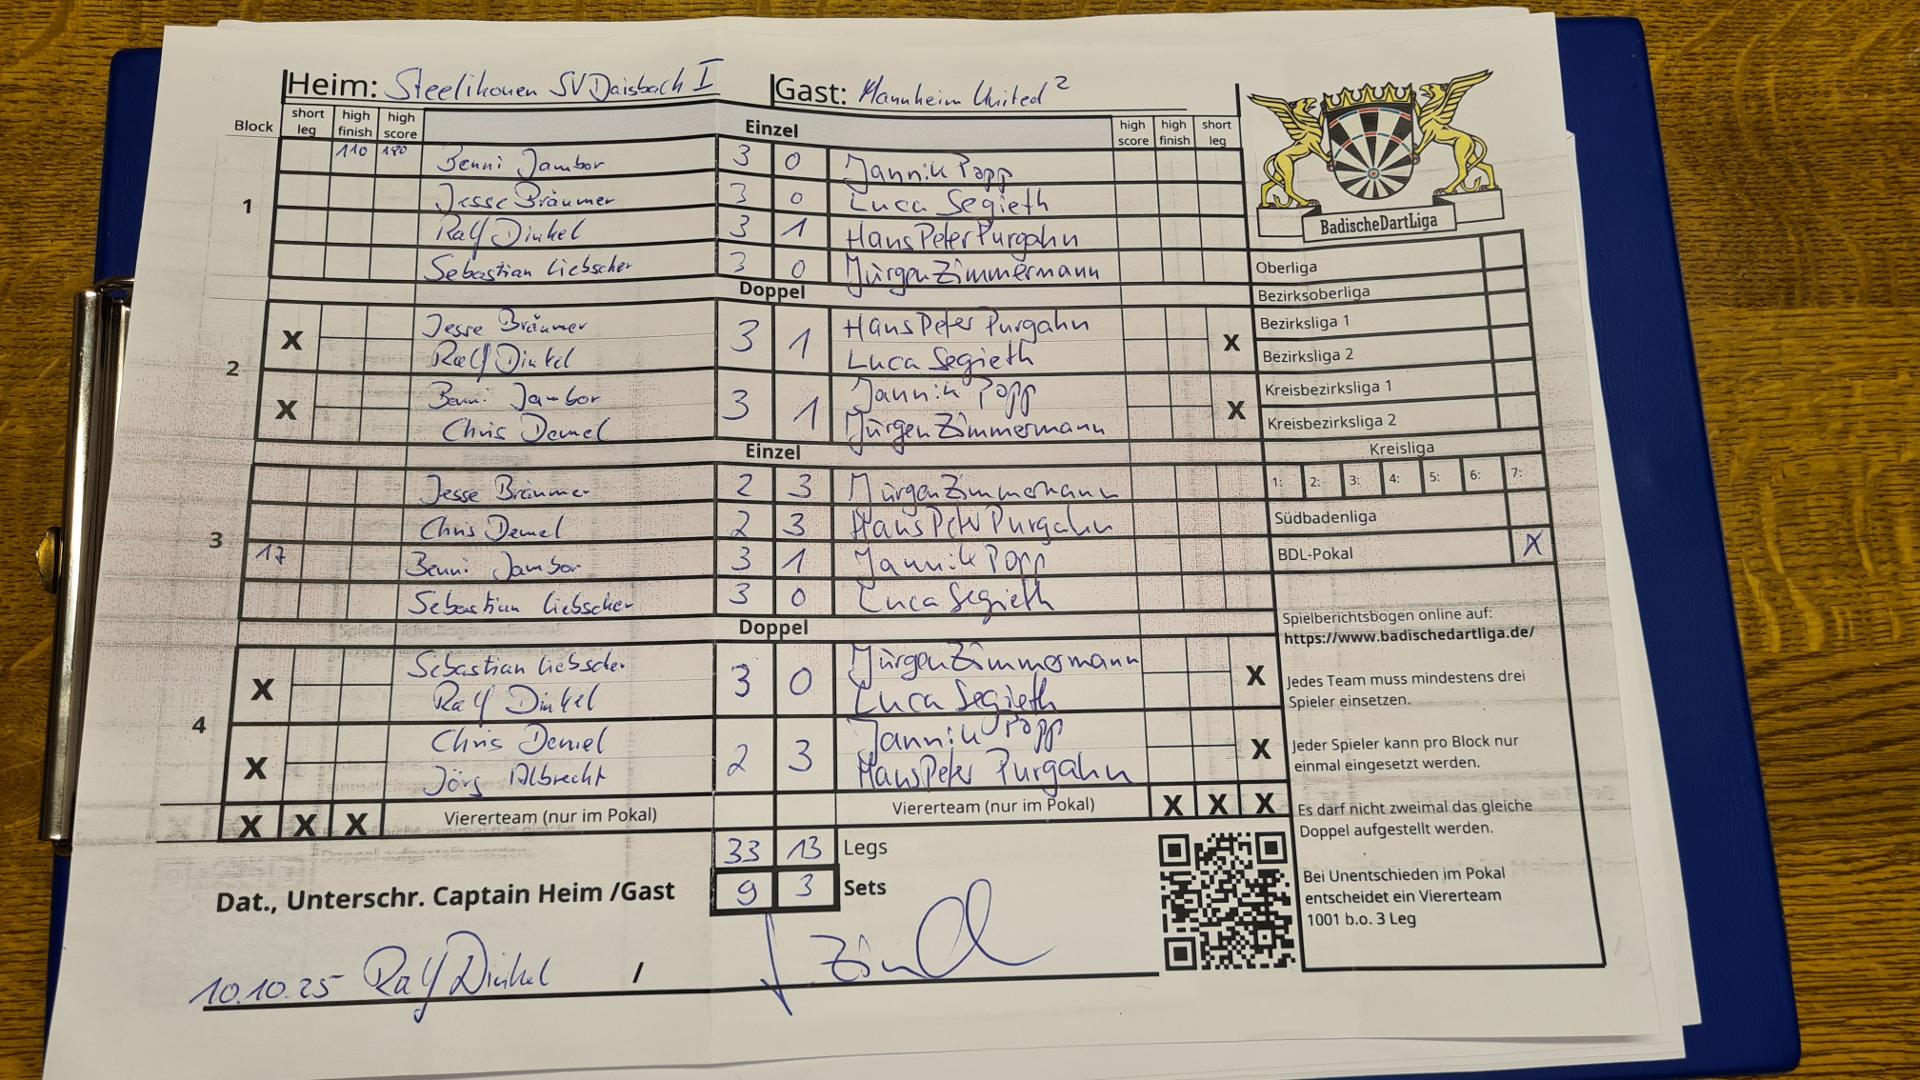 Heim: Steelikonen SV Daisbach I Gast: Mannheim United 2
Block short leg high finish high score Einzel high score high finish short leg
110 180 Benni Jambor 3 0 Jannik Popp
1 Jesse Bräumer 3 0 Luca Segieth
Ralf Dinkel 3 1 Hans Peter Purgahn
Sebastian Liebscher 3 0 Jürgen Zimmermann
Doppel
2
X Jesse Bräumer 3 1 Hans Peter Purgahn X
Ralf Dinkel Luca Segieth
X Benni Jambor 3 1 Jannik Popp X
Chris Demel Jürgen Zimmermann
Einzel
Jesse Bräumer 2 3 Jürgen Zimmermann
Chris Demel 2 3 Hans Peter Purgahn
3 17 Benni Jambor 3 1 Jannik Popp
Sebastian Liebscher 3 0 Luca Segieth
Doppel
4
X Sebastian Liebscher 3 0 Jürgen Zimmermann X
Ralf Dinkel Luca Segieth
X Chris Demel 2 3 Jannik Popp X
Jörg Albrecht Hans Peter Purgahn
X X X Viererteam (nur im Pokal) Viererteam (nur im Pokal) X X X
33 13 Legs
9 3 Sets
Dat., Unterschr. Captain Heim /Gast
10.10.25 Ralf Dinkel /
BadischeDartLiga
Oberliga
Bezirksoberliga
Bezirksliga 1
Bezirksliga 2
Kreisbezirksliga 1
Kreisbezirksliga 2
Kreisliga
1: 2: 3: 4: 5: 6: 7:
Südbadenliga
BDL-Pokal X
Spielberichtsbogen online auf:
https://www.badischedartliga.de/
Jedes Team muss mindestens drei
Spieler einsetzen.
Jeder Spieler kann pro Block nur
einmal eingesetzt werden.
Es darf nicht zweimal das gleiche
Doppel aufgestellt werden.
Bei Unentschieden im Pokal
entscheidet ein Viererteam
1001 b.o. 3 Leg